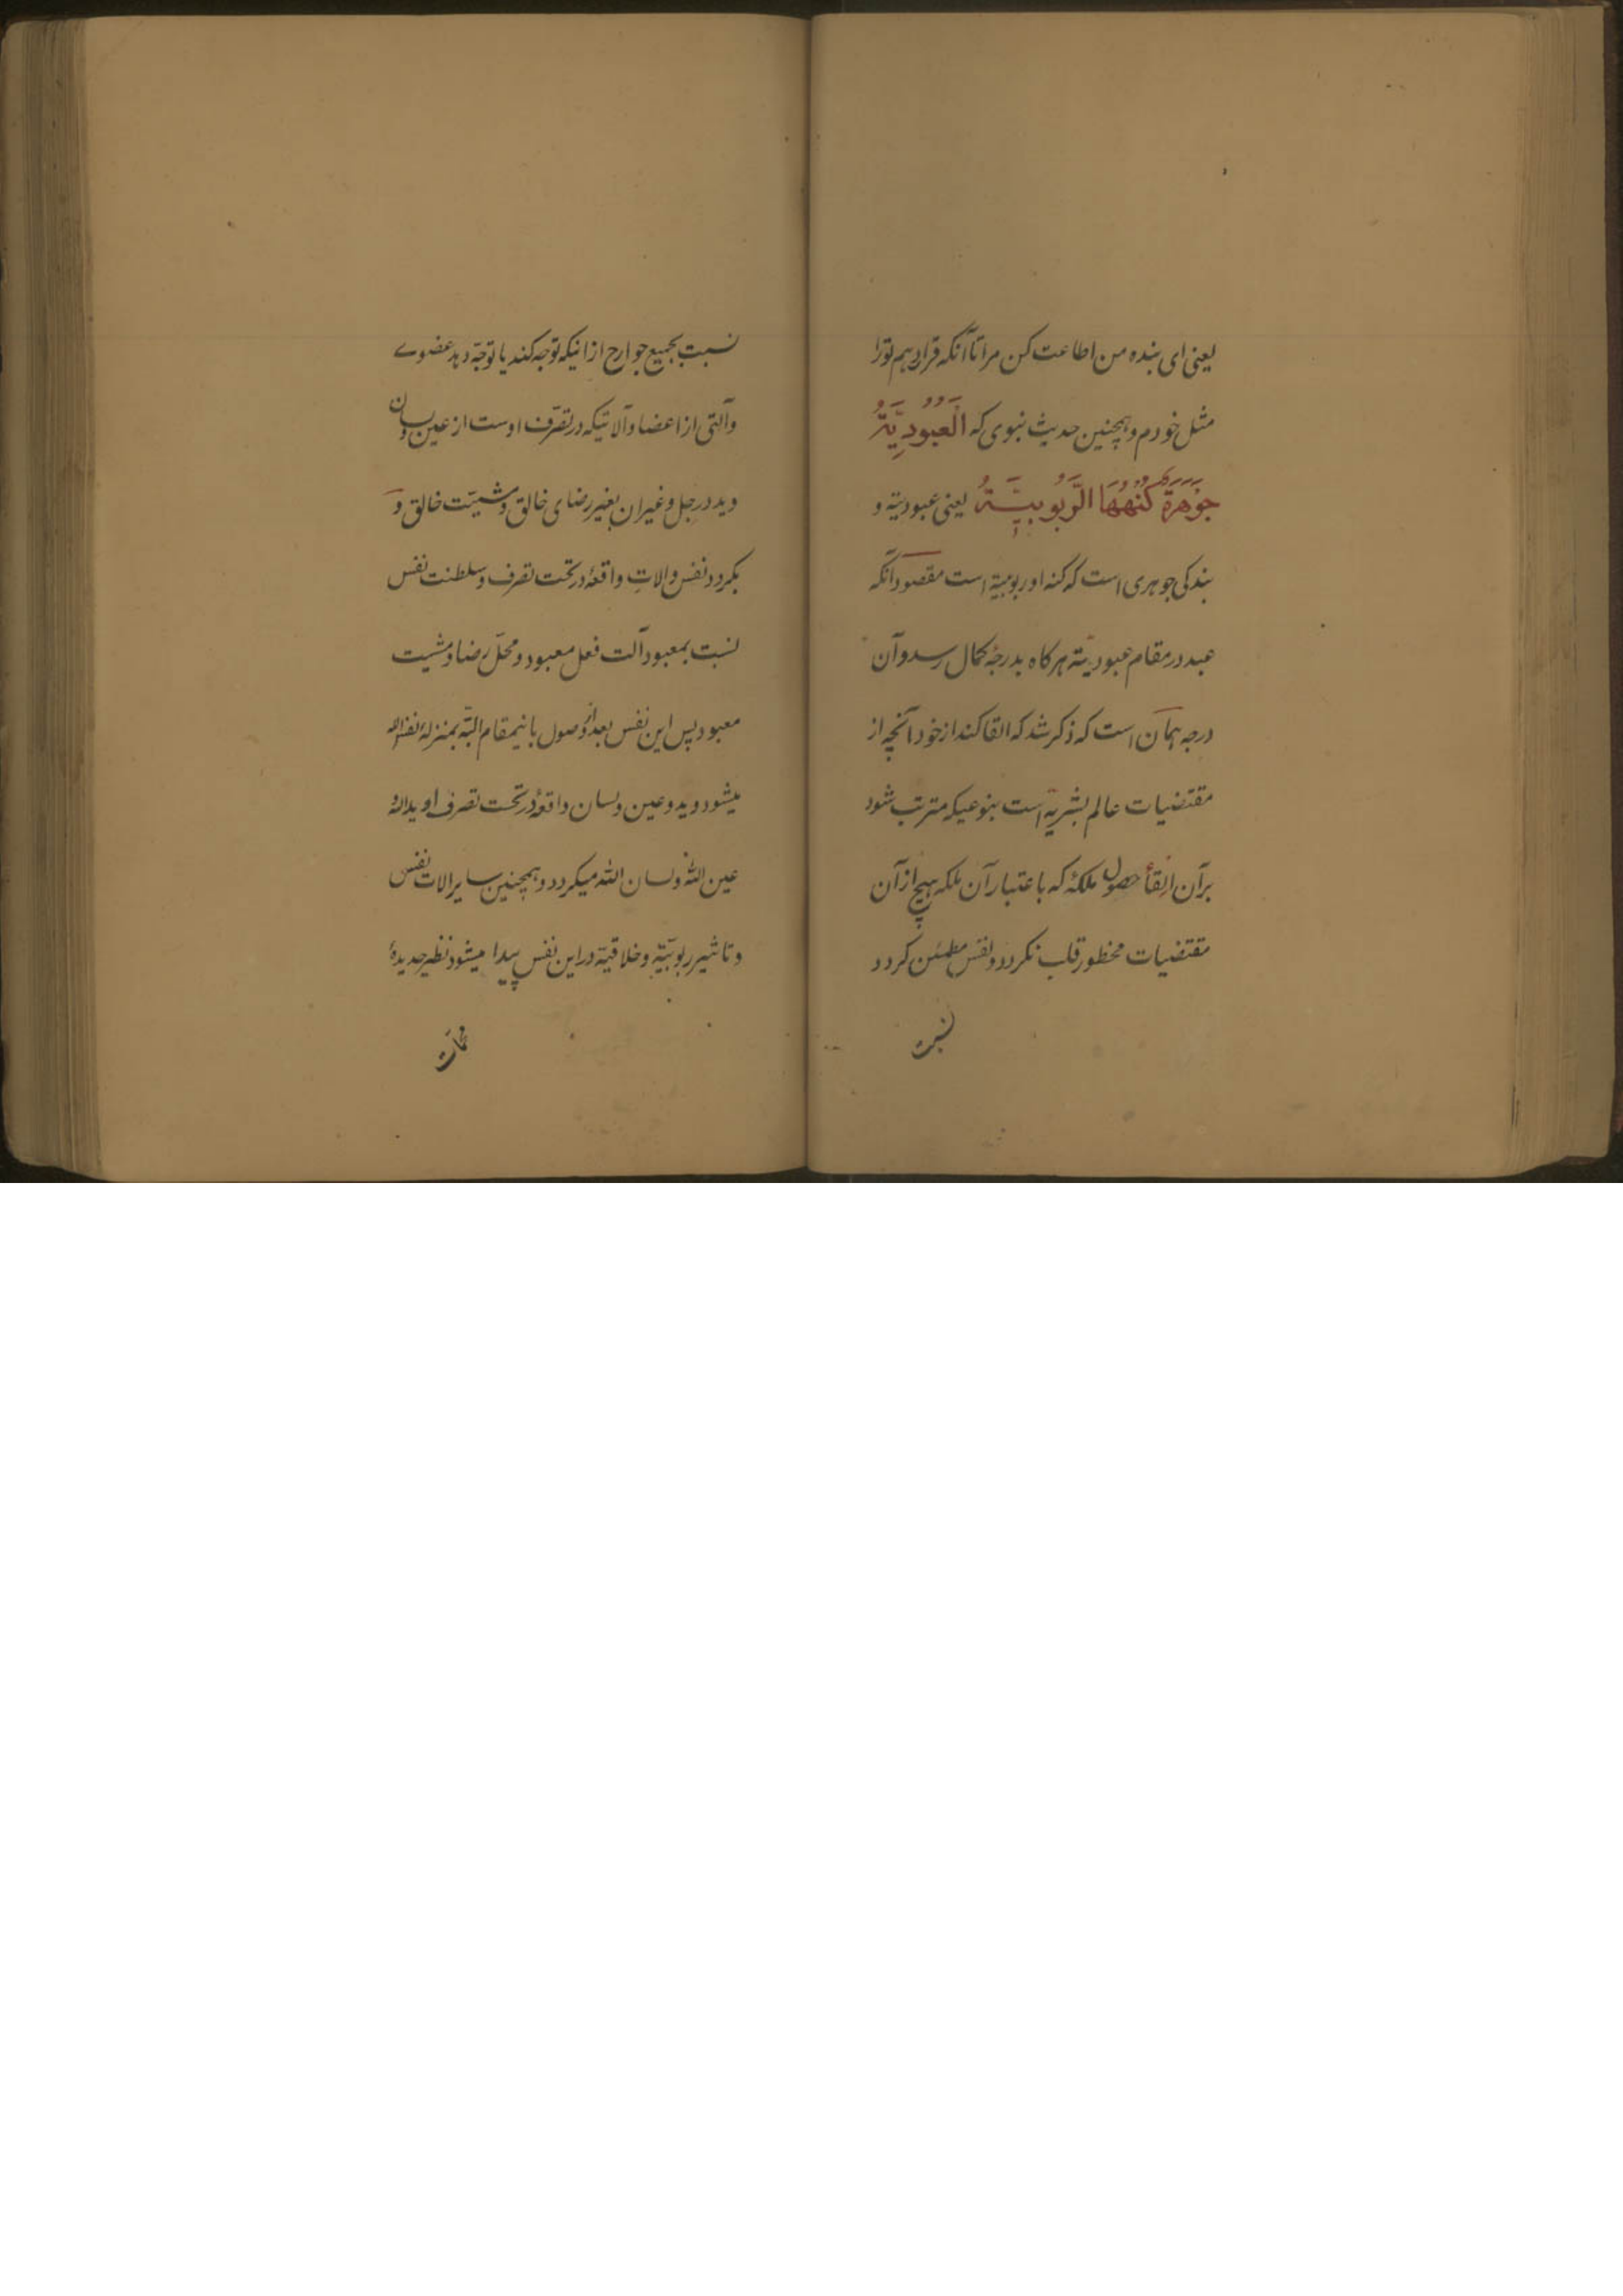 یعنی ای بنده من اطاعت کن مرا تا آنکه قرار دهم تورا
مثل خودم و همچنین حدیث نبوی که اَلْعُبُودِیَّةُ
جَوْهَرَةٌ کُنْهُهَا الرُّبُوبِیَّةُ یعنی عبودیّة و
بندکی جوهری است که کنه او ربوبیة است مقصود آنکه
عبد در مقام عبودیّة هرکاه بدرجهٔ کمال رسد و آن
درجه همان است که ذکر شد که القا کند از خود آنچه از
مقتضیات عالم بشریّة است بنوعیکه مترتب شود
برآن القأ حصول ملکهٔ که باعتبار آن ملکه هیچ از آن
مقتضیات مخطور قلب نکردد و نفس مطمئن کردد
نسبت
نسبت بجمیع جوارح از اینکه توجه کند یا توجّه دهد عضوے
و آلتی از اعضا و آلاتیکه در تصرّف اوست از عین و لسان
و ید و رجل و غیر ان بغیر رضای خالق و مشیّت خالق و
بکردد نفس و الاتِ واقعهٔ در تحت تصرف و سلطنت نفس
نسبت بمعبود آلت فعل معبود و محلّ رضا و مشیت
معبود پس این نفس بعد از وصول باینمقام البتّه بمنزلهٔ نفس الله
میشود و ید و عین و لسان واقعهٔ در تحت تصرف او ید الله و
عین الله و لسان الله میکردد و همچنین سایر الات نفس
و تاثیر ربوبیّة و خلاقیّة در این نفس پیدا میشود نظیر حدیدهٔ